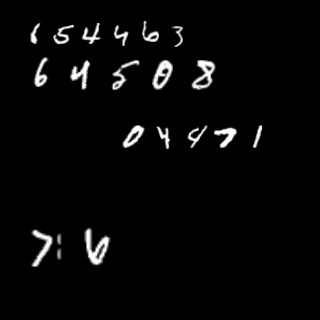 654463
64508
04471
7:6